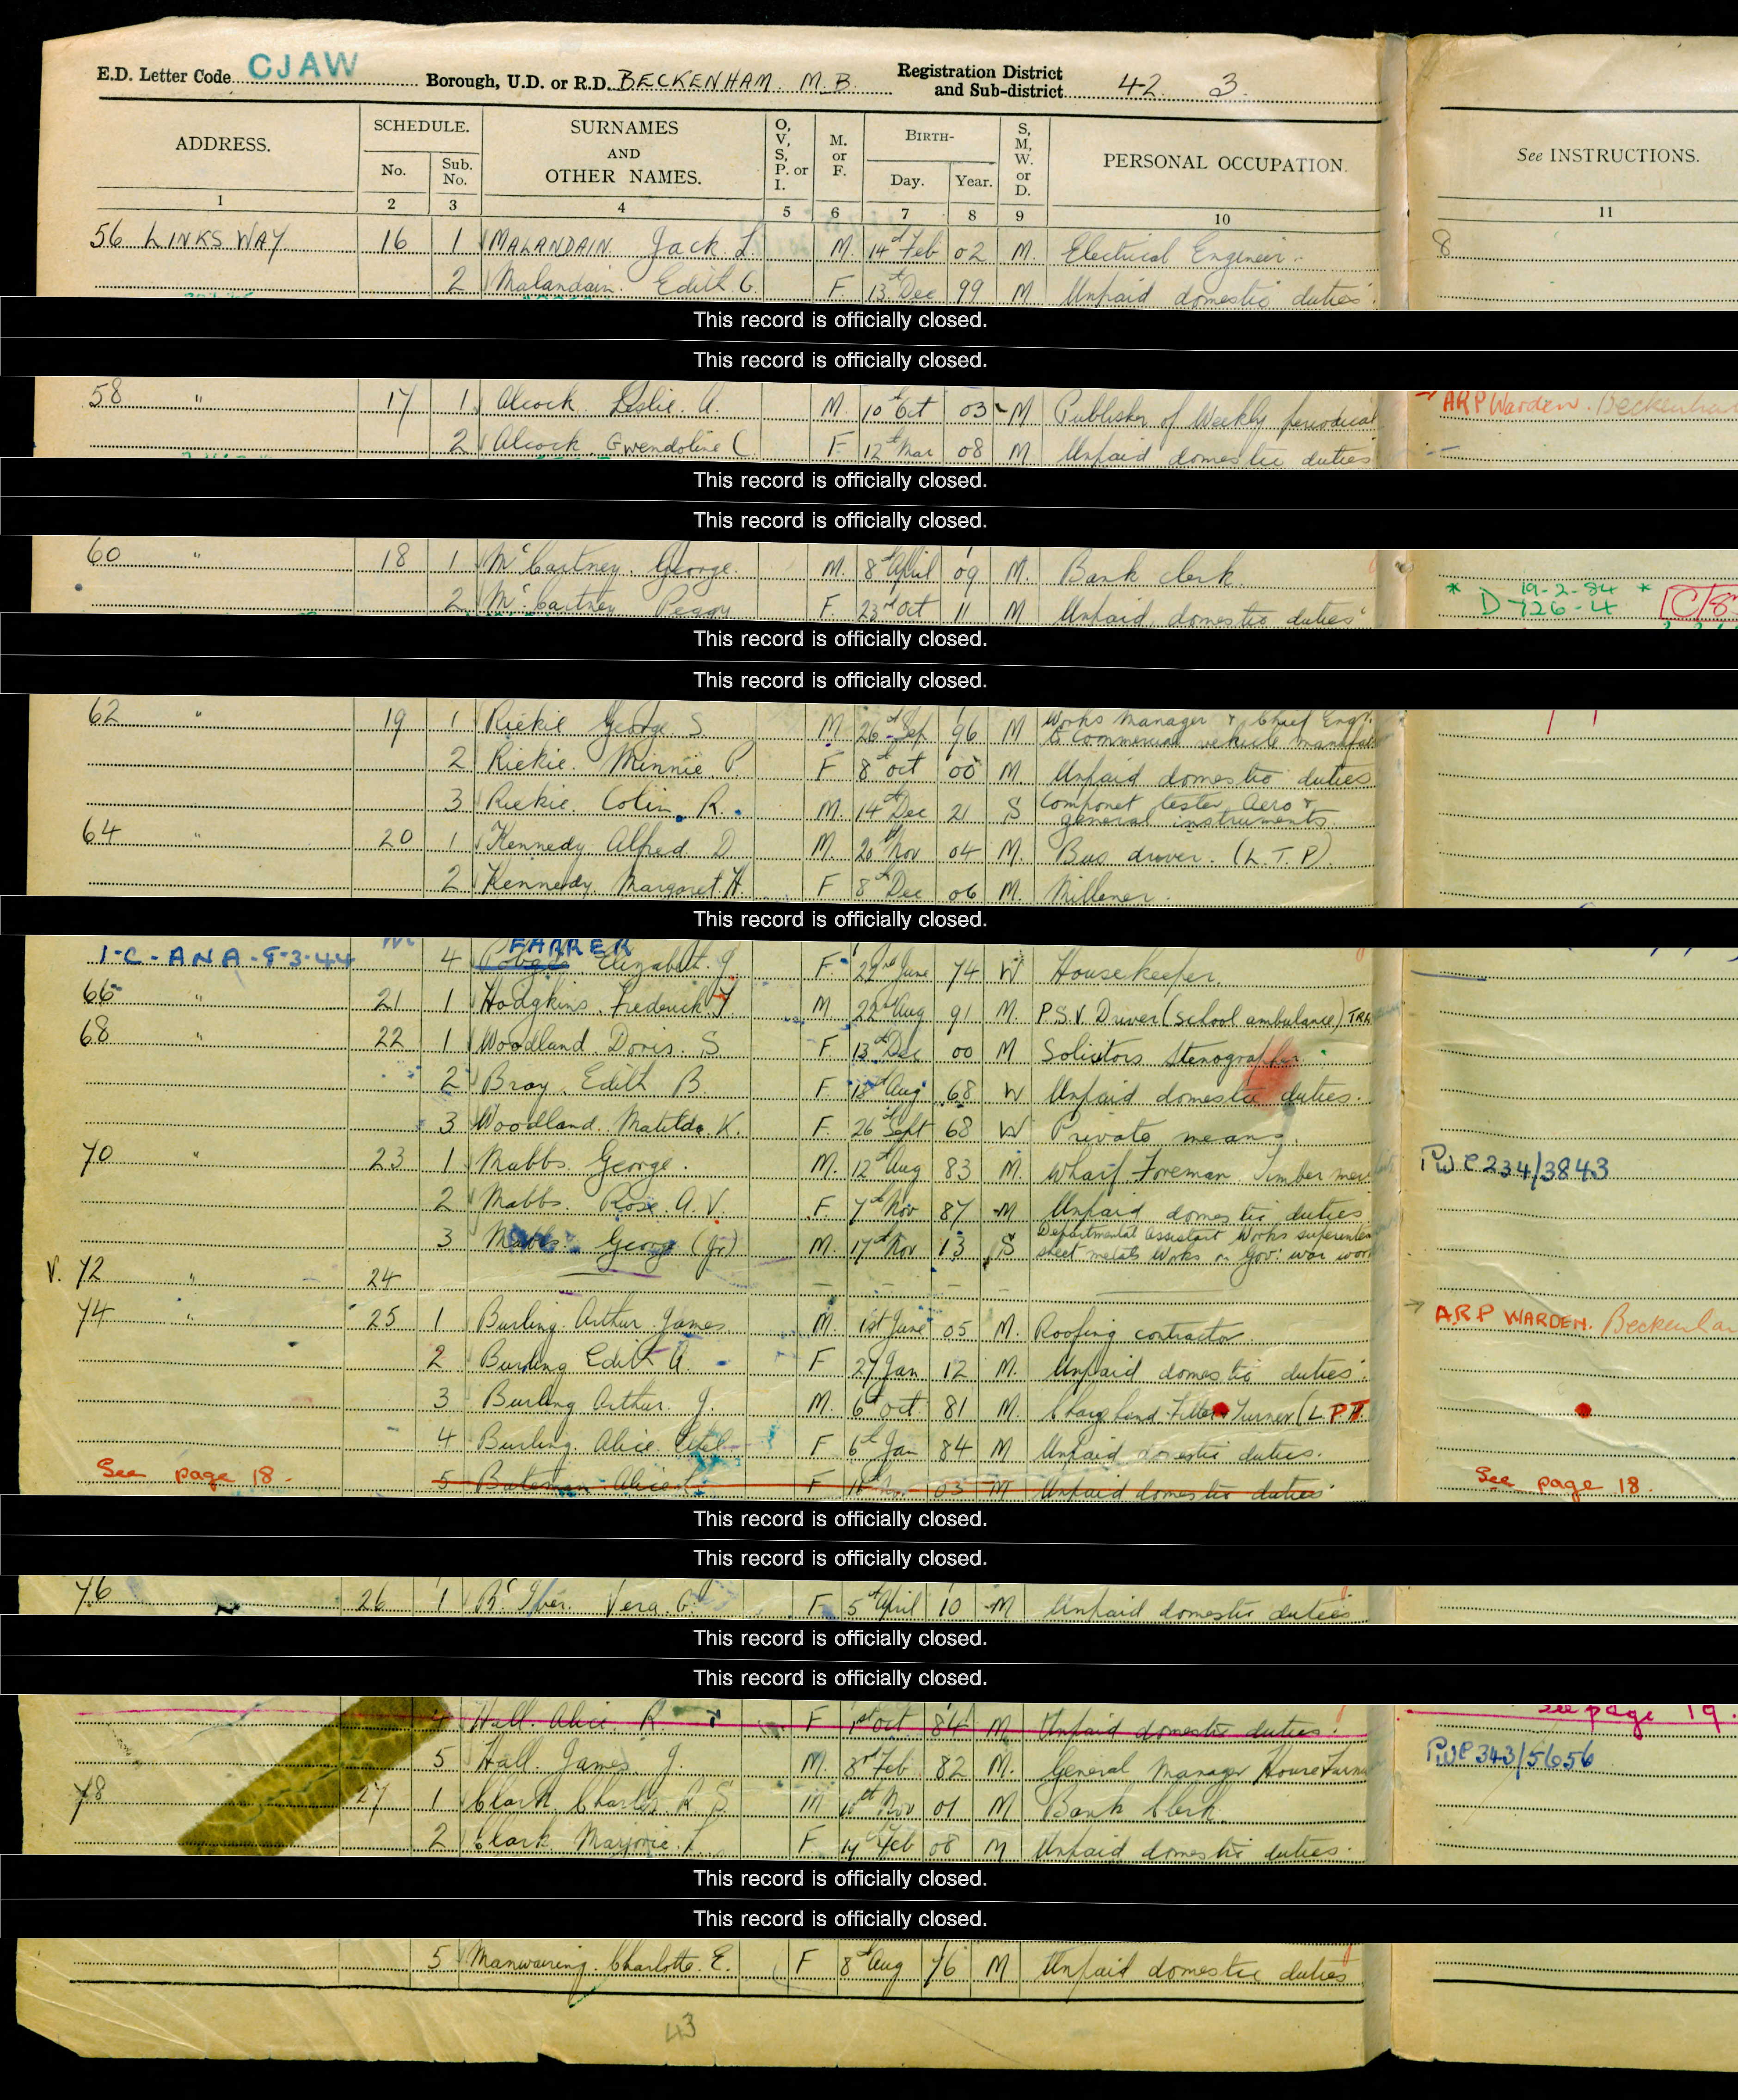 E.D. Letter Code CJAW Borough, U.D. or R.D. BECKENHAM. M.B. Registration District and Sub-district 42. 3.
ADDRESS. SCHEDULE. No. Sub. No. SURNAMES AND OTHER NAMES. O, V, S, P. or I. M. or F. BIRTH- Day. Year. S, M, W. or D. PERSONAL OCCUPATION. See INSTRUCTIONS.
1 2 3 4 5 6 7 8 9 10 11
56 LINKS WAY 16 1 MALANDAIN. Jack. L. M. 14th Feb 02 M. Electrical Engineer. 8
2 Malandain. Edith G. F. 13th Dec 99 M Unpaid domestic duties.
This record is officially closed.
This record is officially closed.
58 " 17 1 Alcock. Leslie. A. M. 10th Oct 03 M Publisher of Weekly periodical ARP Warden. Beckenham
2 Alcock. Gwendoline C. F 12th Mar 08 M Unpaid domestic duties
This record is officially closed.
This record is officially closed.
60 " 18 1 McCartney. George. M. 8th April 09 M. Bank clerk.
2 McCartney Peggy F. 23rd Oct 11 M Unpaid domestic duties * D 19-2-84 726-4 * C/8
This record is officially closed.
This record is officially closed.
62 " 19 1 Riekie George S. M 26th Sep 96 M Works Manager & Chief Engr. to Commercial vehicle
2 Riekie. Minnie. P. F 8th Oct 00 M Unpaid domestic duties
3 Riekie. Colin. R. M. 14th Dec 21 S Componet tester Aero & general instruments.
64 " 20 1 Kennedy Alfred D M. 20th Nov 04 M. Bus driver. (L.T.P).
2 Kennedy. Margaret. H. F 8th Dec 06 M. Millener.
This record is officially closed.
1-C-ANA-8-3-44 4 FARRER Elizabeth. J. F. 22nd June 74 W Housekeeper.
66 " 21 1 Hodgkins. Frederick J. M. 22nd Aug 91 M. P.S.V. Driver (School ambulance)
68 " 22 1 Woodland. Doris. S. F. 13th Dec 00 M Solicitors Stenographer.
2 Bray. Edith B. F. 18th Aug 68 W Unpaid domestic duties.
3 Woodland. Matilda. K. F. 26th Sept 68 W Private means.
70 " 23 1 Mabbs. George. M. 12th Aug 83 M. Wharf Foreman. Timber PWE234/3843
2 Mabbs. Rose. A. V. F 7th Nov 87 M Unpaid domestic duties
3 Mabbs. George (Jr) M. 17th Nov 13 S Departmental Assistant Works sheet metals Works on Gov: war work
V. 72 " 24 – – –
74 " 25 1 Burling. Arthur. James. M. 1st June 05 M. Roofing contractor ARP WARDEN. Beckenham
2 Burling Edith A. F 27 Jan 12 M. Unpaid domestic duties.
3 Burling Arthur. J. M. 6th Oct 81 M. Chargehand Fitter Turner (L.P.T.
4 Burling. Alice. Ethel. F 6th Jan 84 M Unpaid domestic duties.
See page 18. 5 Bateman Alice F 03 M Unpaid domestic duties See page 18.
This record is officially closed.
This record is officially closed.
76 26 1 Vera. G. F 5th April 10 M Unpaid domestic duties
This record is officially closed.
This record is officially closed.
4 Hall. Alice. R. F 1st Oct 84 M Unpaid domestic duties. See page 19.
5 Hall. James J. M. 3rd Feb 82 M. General Manager House PWE343/5656
78 27 1 Clark. Charles R. S. M Nov 01 M Bank Clerk.
2 Clark Marjorie. F 14 Feb 08 M Unpaid domestic duties.
This record is officially closed.
This record is officially closed.
5 Manwaring. Charlotte. E. F 8th Aug 76 M Unpaid domestic duties
43